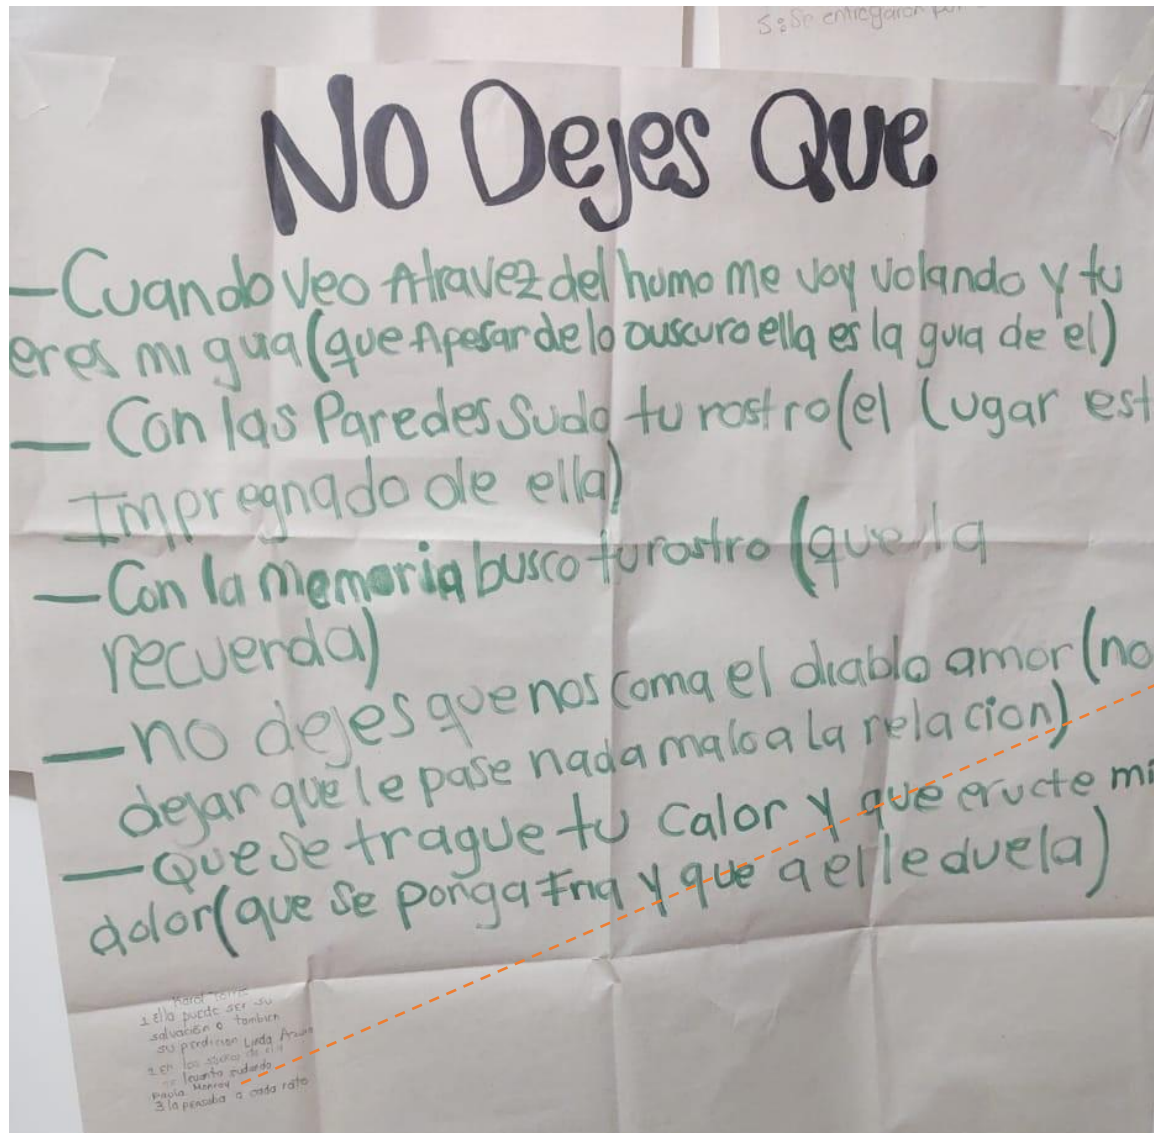 5: Se entregaron por
No Dejes Que
— Cuando veo Atravez del humo me voy volando y tu
eres mi gua (que Apesar de lo ouscuro ella es la guia de el)
— Con las Paredes Sudo tu rostro (el Lugar est
Impregnado de ella)
— Con la memoria busco tu rostro (que la
recuerda)
— no dejes que nos coma el diablo amor (no
dejar que le pase nada malo a la relacion)
— que se trague tu calor y que eructe mi
dolor (que se ponga fria y que a el le duela)
Karol
1 ella puede ser su
salvación o tambien
su perdicion Linda
2 en los sueños de el
levanta sudando
Paula Monroy
3 la pensaba a cada rato